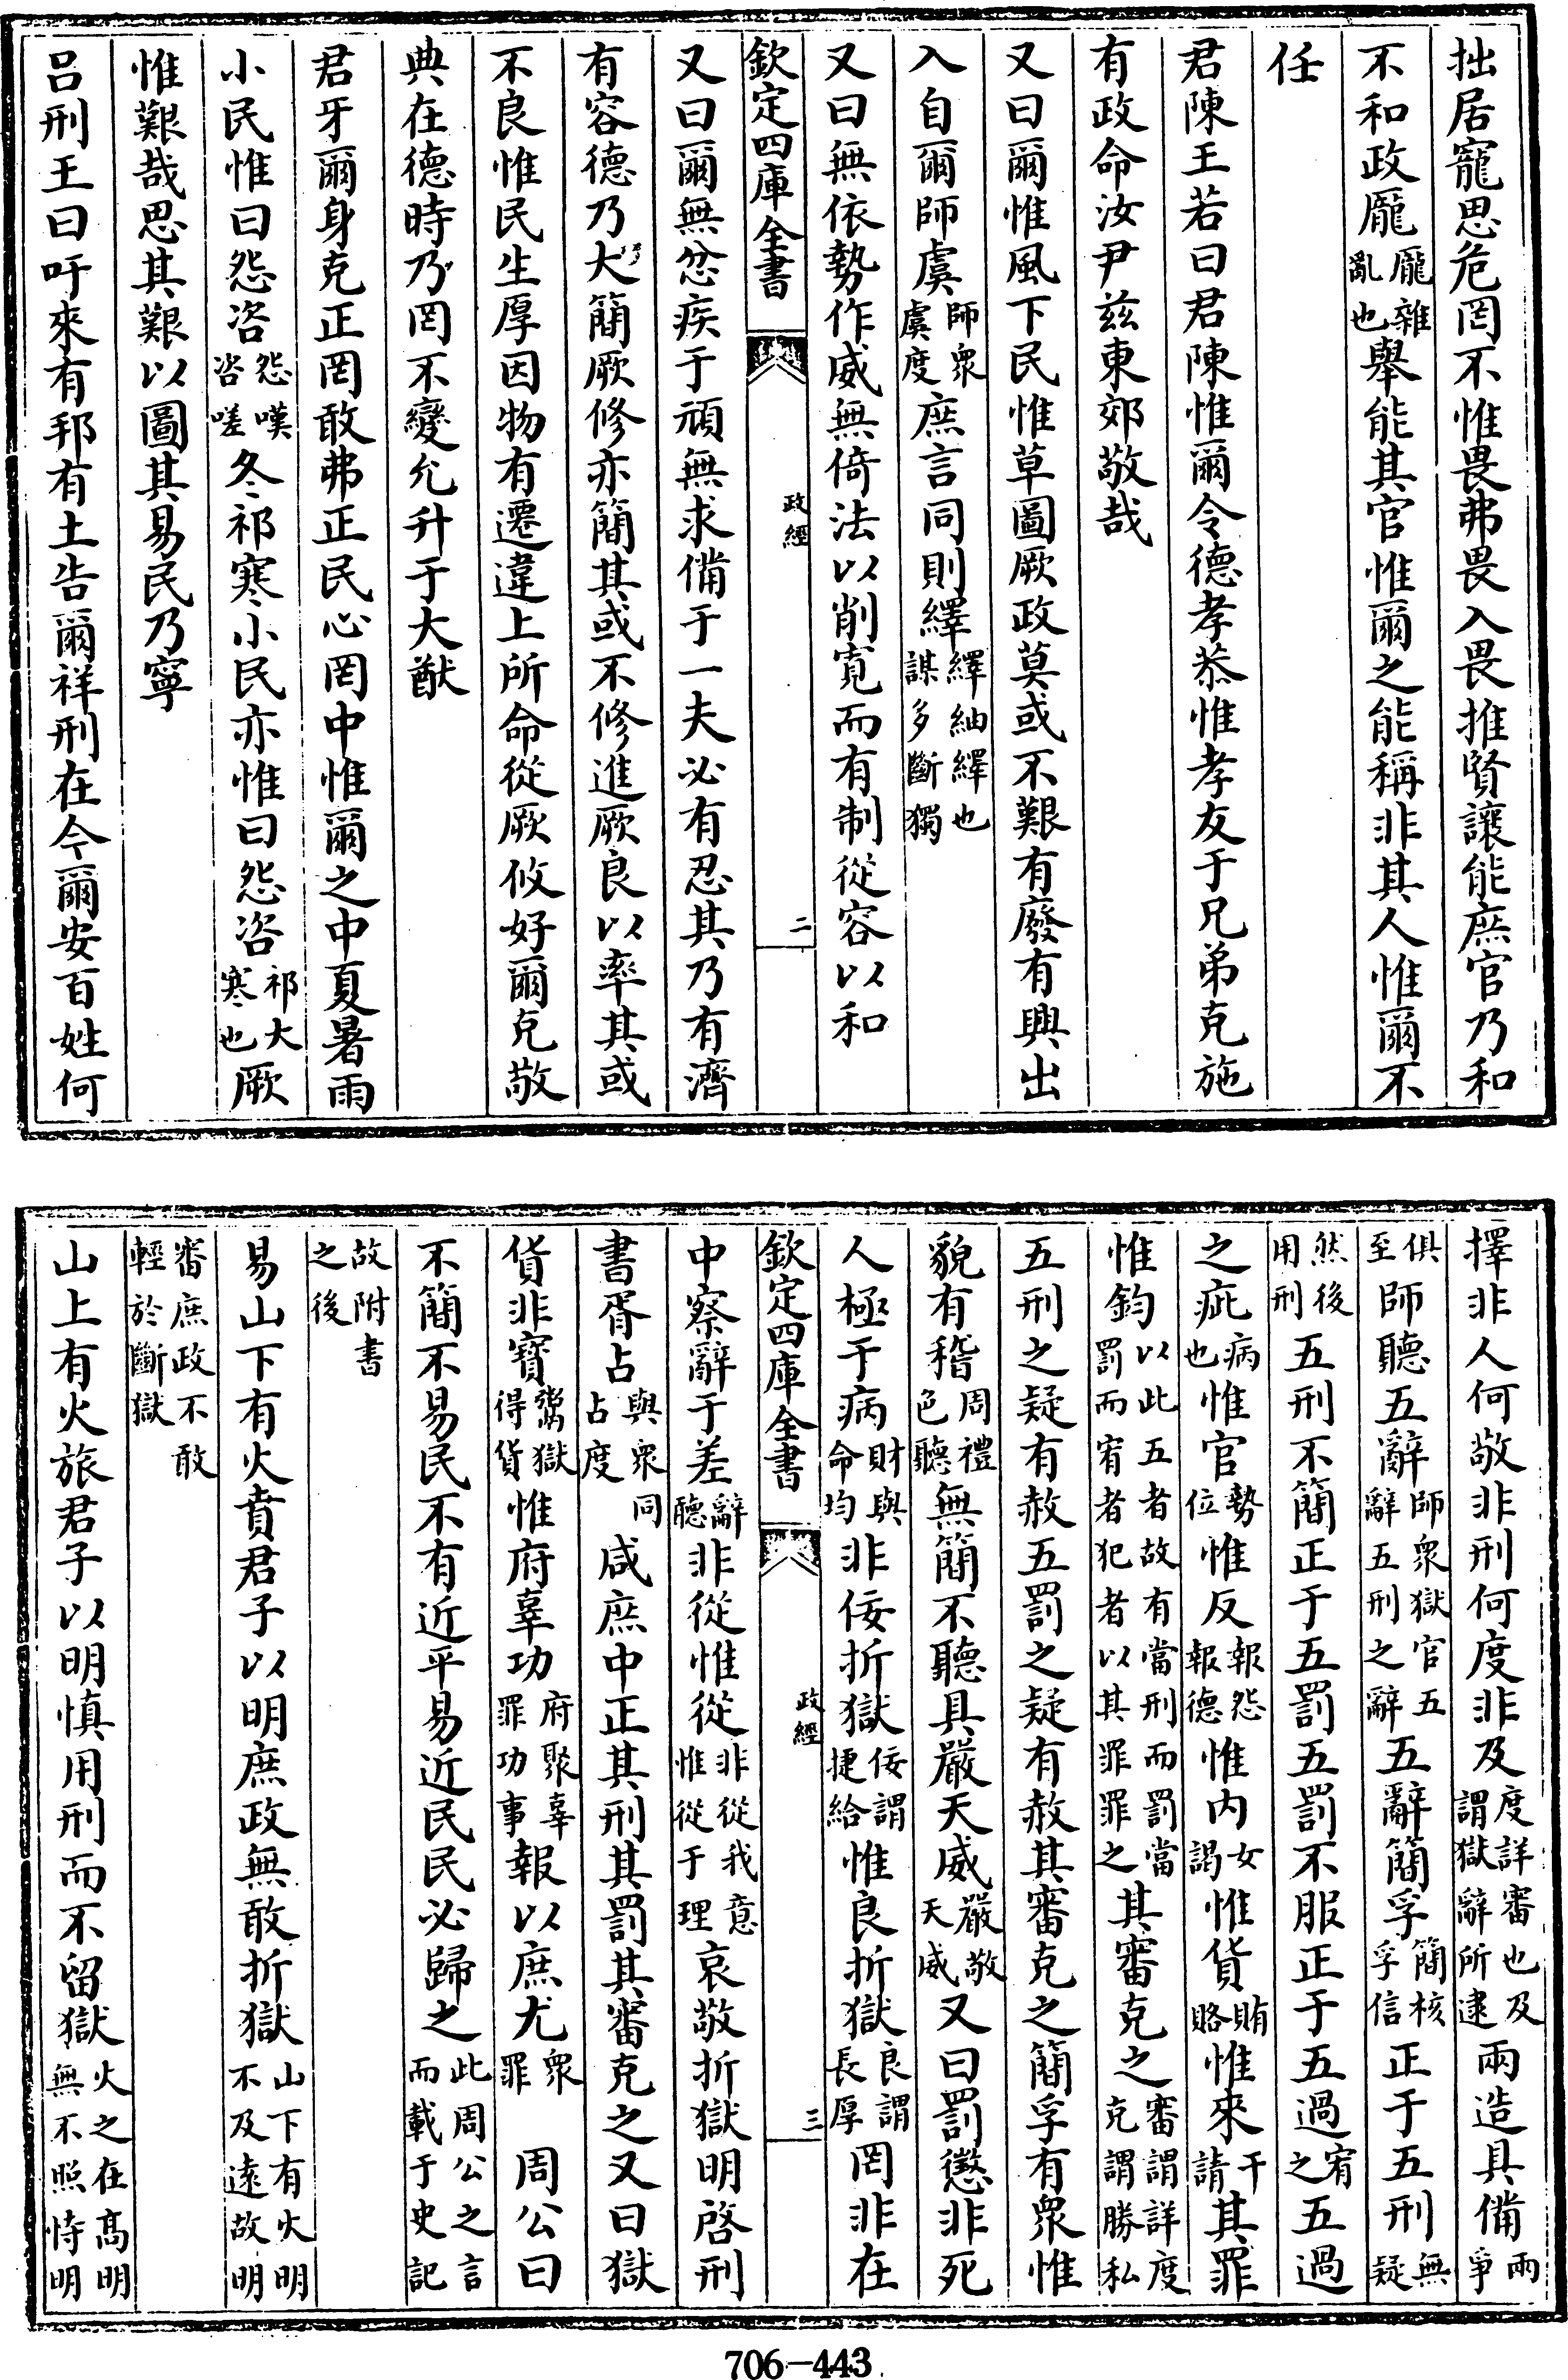 拙居寵思危罔不惟畏弗畏入畏推賢讓能庶官乃和
不和政厖厖雜亂也舉能其官惟爾之能稱非其人惟爾不
任
君陳王若曰君陳惟爾令德孝恭惟孝友于兄弟克施
有政命汝尹兹東郊敬哉
又曰爾惟風下民惟草圖厥政莫或不艱有廢有興出
入自爾師虞師衆虞度庶言同則繹繹紬繹也謀多斷獨
又曰無依勢作威無倚法以削寛而有制從容以和
欽定四庫全書
政經
二
又曰爾無忿疾于頑無求備于一夫必有忍其乃有濟
有容德乃大簡厥修亦簡其或不修進厥良以率其或
不良惟民生厚因物有遷違上所命從厥攸好爾克敬
典在德時乃罔不變允升于大猷
君牙爾身克正罔敢弗正民心罔中惟爾之中夏暑雨
小民惟曰怨咨怨嘆咨嗟冬祁寒小民亦惟曰怨咨祁大寒也厥
惟艱哉思其艱以圖其易民乃寧
呂刑王曰吁來有邦有土告爾祥刑在今爾安百姓何
擇非人何敬非刑何度非及度詳審也及謂獄辭所逮兩造具備兩爭
俱至師聽五辭師衆獄官五辭五刑之辭五辭簡孚簡核孚信正于五刑無疑
然後用刑五刑不簡正于五罰五罰不服正于五過宥之五過
之疵病也惟官勢位惟反報怨報德惟内女謁惟貨賄賂惟來干請其罪
惟鈞以此五者故有當刑而罰當罰而宥者犯者以其罪罪之其審克之審謂詳度克謂勝私
五刑之疑有赦五罰之疑有赦其審克之簡孚有衆惟
貌有稽周禮色聽無簡不聽具嚴天威嚴敬天威又曰罰懲非死
人極于病財與命均非佞折獄佞謂捷給惟良折獄良謂長厚罔非在
欽定四庫全書
政經
三
中察辭于差辭聽非從惟從非從我意惟從于理哀敬折獄明啓刑
書胥占與衆同占度咸庶中正其刑其罰其審克之又曰獄
貨非寳鬻獄得貨惟府辜功府聚辜罪功事報以庶尤衆罪周公曰
不簡不易民不有近平易近民民必歸之此周公之言而載于史記
故附書之後
易山下有火賁君子以明庶政無敢折獄山下有火明不及遠故明
審庶政不敢輕於斷獄
山上有火旅君子以明慎用刑而不留獄火之在高明無不照恃明
706-443